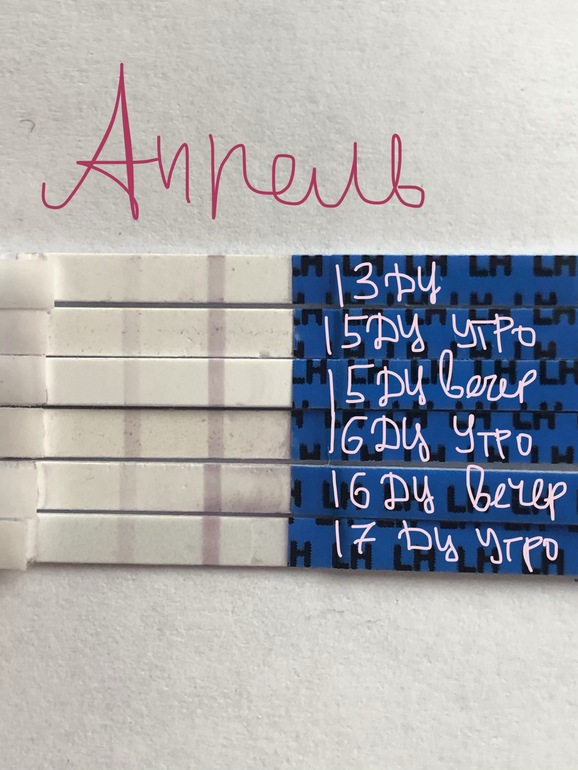 Апрель
13 ДЦ
15 ДЦ утро
15 ДЦ вечер
16 ДЦ утро
16 ДЦ вечер
17 ДЦ утро
LH LH LH